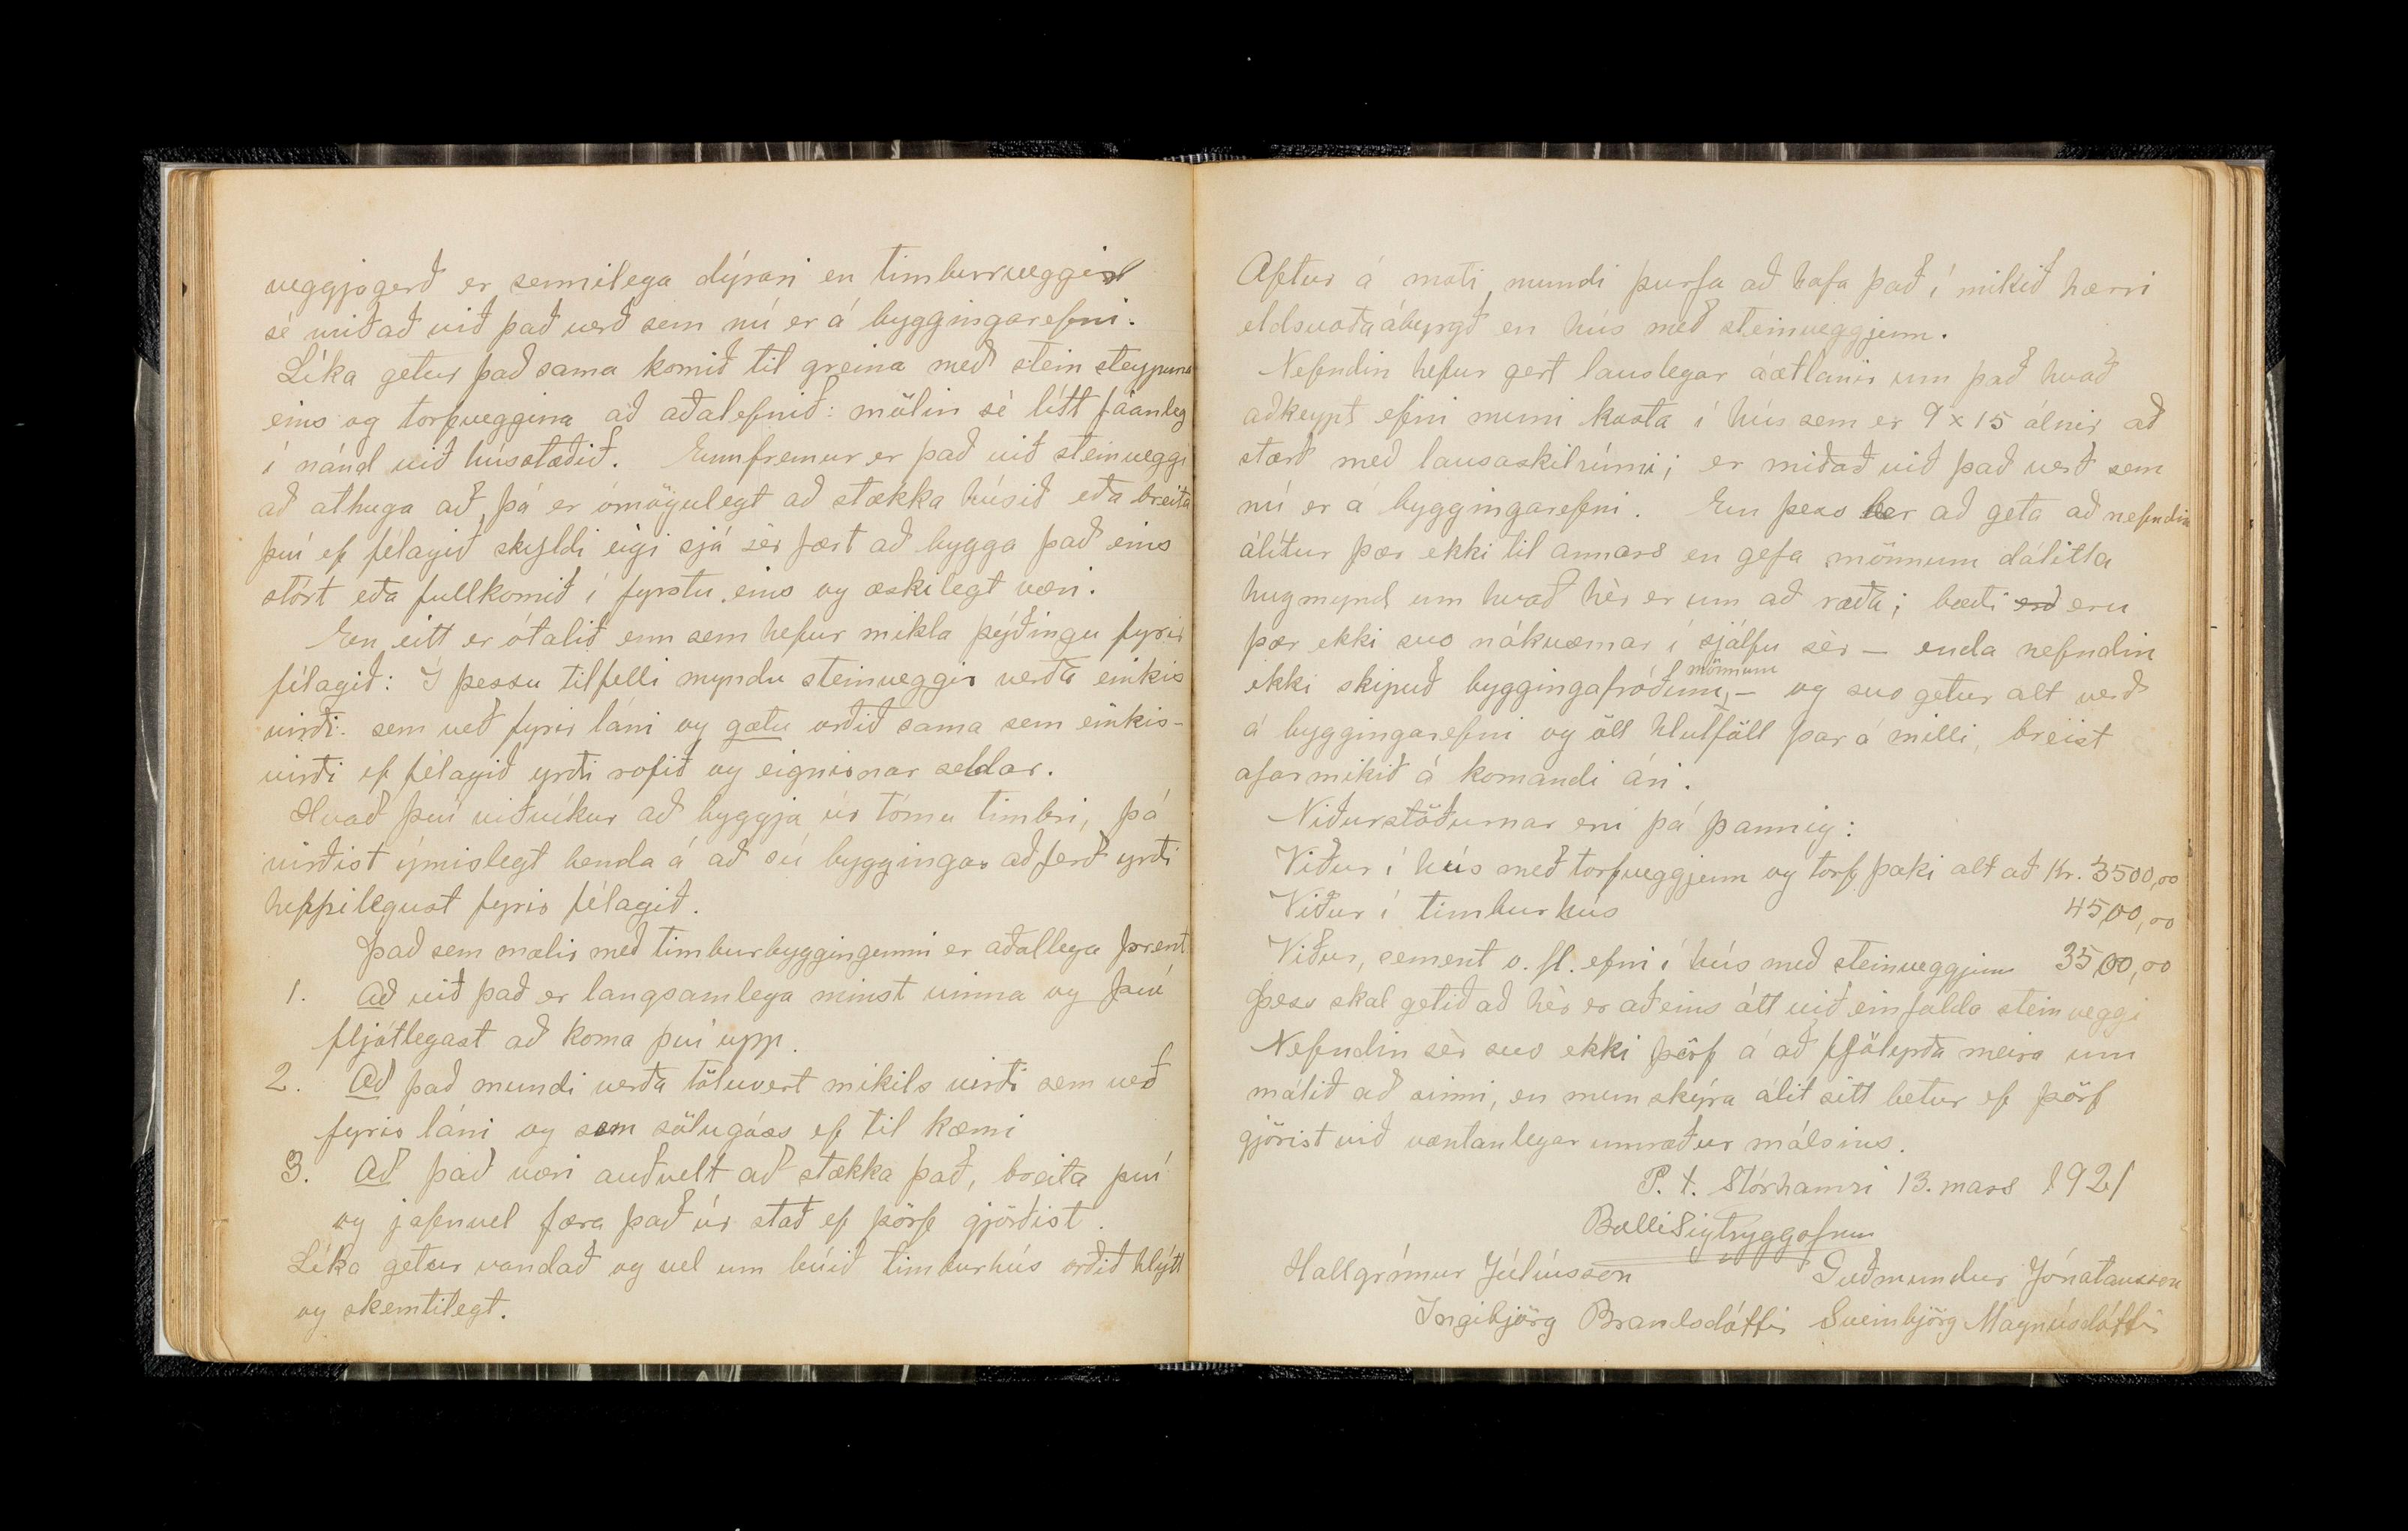 veggjagerð er sennilega dýrari en timburveggir
sé miðað við það verð sem nú er á byggingarefni.
Líka getur það sama komið til greina með stein steypuna
eins og torfveggina að aðalefnið: mölin sé lítt fáanleg
í nánd við hússtæðið. Ennfremur er það við steinveggi
að athuga að, þá er ómögulegt að stækka húsið eða breita
því ef félagið skyldi eigi sjá sér fært að bygga það eins
stórt eða fullkomið í fyrstu, eins og æskilegt væri.
En eitt er ótalið enn sem hefur mikla þýðingu fyrir
félagið: Í þessu tilfelli myndu steinveggir verða einkis
virði sem veð fyrir láni og gætu orðið sama sem einkis-
virði ef félagið yrði rofið og eignirnar seldar.
Hvað því viðvíkur að byggja úr tómu timbri, þá
virðist ýmislegt benda á að sú byggingar aðferð yrði
heppilegust fyrir félagið.
Það sem mælir með timburbyggingunni er aðallega þrent
1. Að við það er langsamlega minst vinna og því
fljótlegast að koma því upp.
2. Að það mundi verða töluvert mikils virði sem veð
fyrir láni og sem sölugóss ef til kæmi
3. Að það væri auðvelt að stækka það, breita því
og jafnvel færa það úr stað ef þörf gjörðist.
Líka getur vandað og vel um búið timburhús orðið hlýtt
og skemtilegt.
Aftur á moti, mundi þurfa að hafa það í mikið hærri
eldsvoðaábyrgð en hús með steinveggjum.
Nefndin hefur gert lauslegar áætlanir um það hvað
aðkeypt efni muni kosta í hús sem er 9 x 15 álnir að
stærð með lausaskilrúmi; er miðað við það verð sem
nú er á byggingarefni. En þess ber að geta að nefndin
álítur þær ekki til annars en gefa mönnum dálitla
hugmynd um hvað hér er um að ræða; bæði erd eru
þær ekki svo nákvæmar í sjálfu sér – enda nefndin
ekki skipuð byggingafróðum mönnum, – og svo getur alt verð
á byggingarefni og öll hlutföll þar á milli, breist
afar mikið á komandi ári.
Niðurstöðurnar eru þá þannig:
Viður í hús með torfveggjum og torf þaki alt að Kr. 3500,00
Viður í timburhús 4500,00
Viður, sement o. fl. efni í hús með steinveggjum 3500,00
Þess skal getið að hér er aðeins átt við einfalda steinveggi
Nefndin sér svo ekki þörf á að fjölyrða meira um
málið að sinni, en mun skýra álit sitt betur ef þörf
gjörist við væntanlegar umræður málsins.
P. t. Stórhamri 13. mars 1921
Balli Sigtryggsson
Hallgrímur Júlíusson Guðmundur Jónatansson
Ingibjörg Brandsdóttir Sveinbjörg Magnúsdóttir